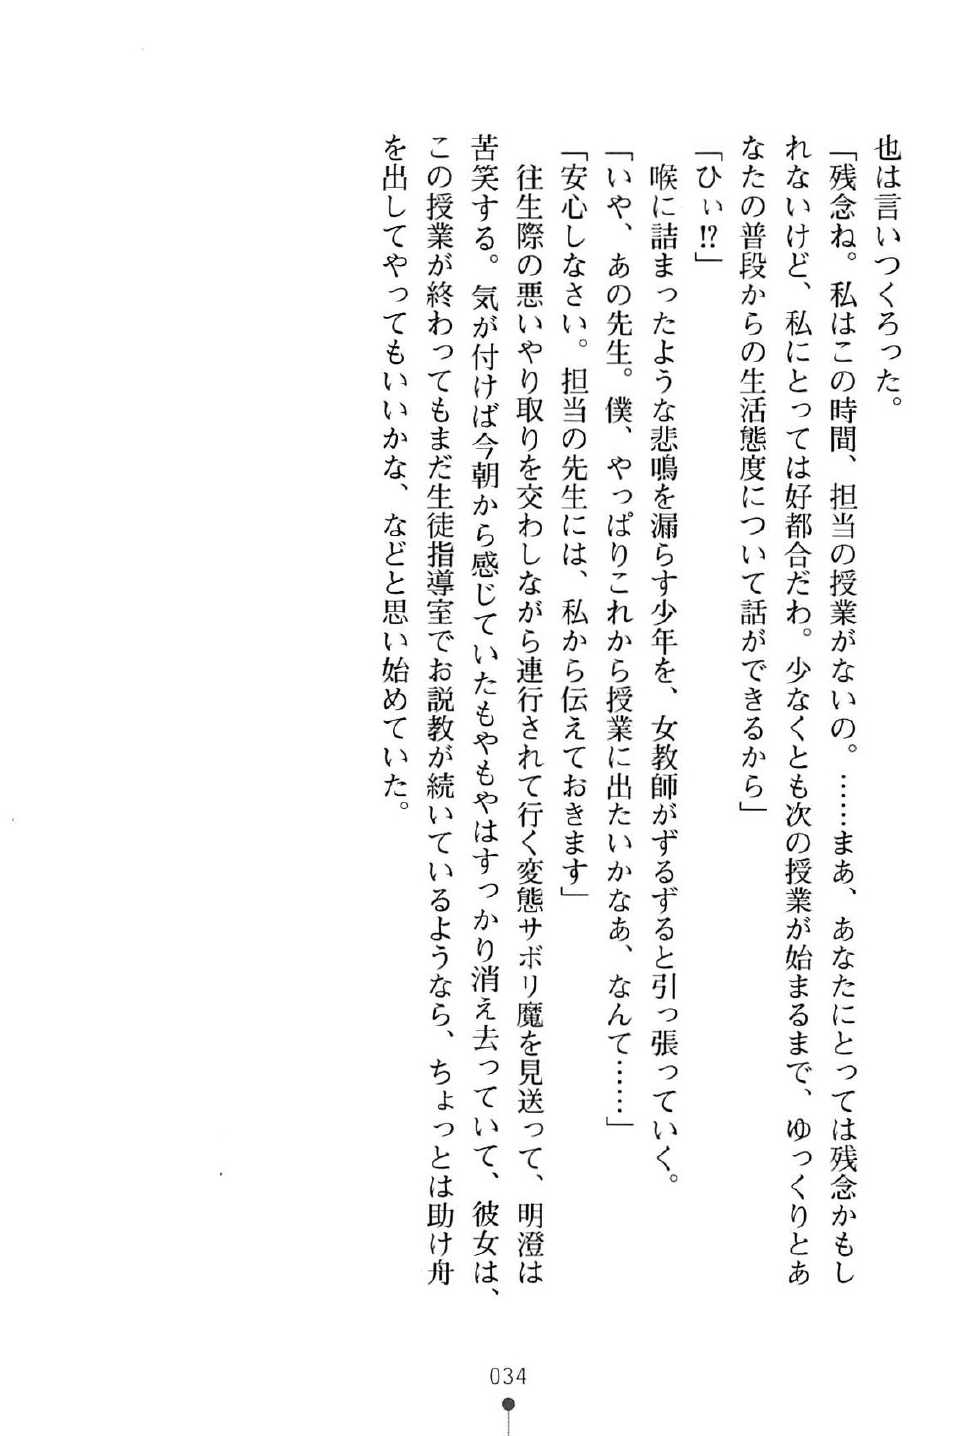 也は言いつくろった。
「残念ね。私はこの時間、担当の授業がないの。……まあ、あなたにとっては残念かもし
れないけど、私にとっては好都合だわ。少なくとも次の授業が始まるまで、ゆっくりとあ
なたの普段からの生活態度について話ができるから」
「ひぃ!?」
喉に詰まったような悲鳴を漏らす少年を、女教師がずるずると引っ張っていく。
「いや、あの先生。僕、やっぱりこれから授業に出たいかなぁ、なんて……」
「安心しなさい。担当の先生には、私から伝えておきます」
往生際の悪いやり取りを交わしながら連行されて行く変態サボリ魔を見送って、明澄は
苦笑する。気が付けば今朝から感じていたもやもやはすっかり消え去っていて、彼女は、
この授業が終わってもまだ生徒指導室でお説教が続いているようなら、ちょっとは助け舟
を出してやってもいいかな、などと思い始めていた。
034